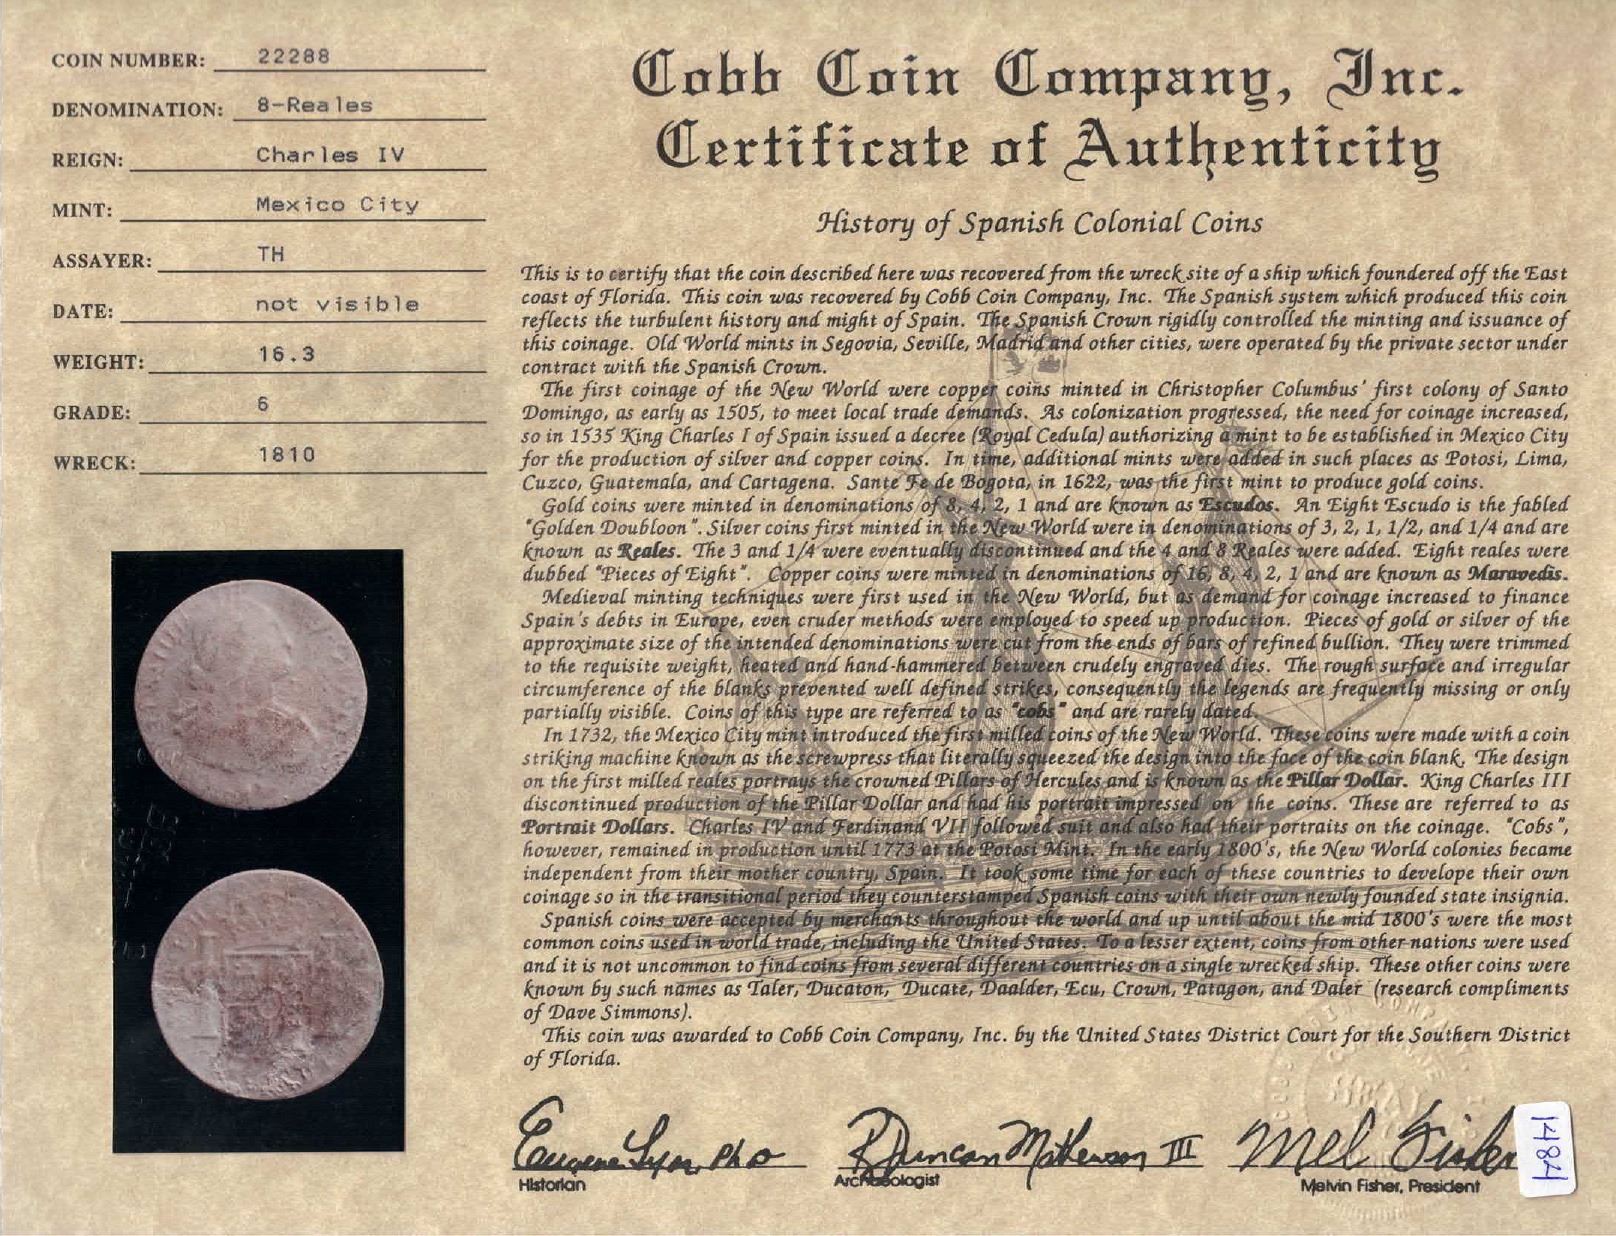 COIN NUMBER: 22288
DENOMINATION: 8-Reales
REIGN: Charles IV
MINT: Mexico City
ASSAYER: TH
DATE: not visible
WEIGHT: 16.3
GRADE: 6
WRECK: 1810
Cobb Coin Company, Inc.
Certificate of Authenticity
History of Spanish Colonial Coins
This is to certify that the coin described here was recovered from the wreck site of a ship which foundered off the East
coast of Florida. This coin was recovered by Cobb Coin Company, Inc. The Spanish system which produced this coin
reflects the turbulent history and might of Spain. The Spanish Crown rigidly controlled the minting and issuance of
this coinage. Old World mints in Segovia, Seville, Madrid and other cities, were operated by the private sector under
contract with the Spanish Crown.
The first coinage of the New World were copper coins minted in Christopher Columbus' first colony of Santo
Domingo, as early as 1505, to meet local trade demands. As colonization progressed, the need for coinage increased,
so in 1535 King Charles I of Spain issued a decree (Royal Cedula) authorizing a mint to be established in Mexico City
for the production of silver and copper coins. In time, additional mints were added in such places as Potosi, Lima,
Cuzco, Guatemala, and Cartagena. Sante Fe de Bogota, in 1622, was the first mint to produce gold coins.
Gold coins were minted in denominations of 8, 4, 2, 1 and are known as Escudos. An Eight Escudo is the fabled
"Golden Doubloon". Silver coins first minted in the New World were in denominations of 3, 2, 1, 1/2, and 1/4 and are
known as Reales. The 3 and 1/4 were eventually discontinued and the 4 and 8 Reales were added. Eight reales were
dubbed "Pieces of Eight". Copper coins were minted in denominations of 16, 8, 4, 2, 1 and are known as Maravedis.
Medieval minting techniques were first used in the New World, but as demand for coinage increased to finance
Spain's debts in Europe, even cruder methods were employed to speed up production. Pieces of gold or silver of the
approximate size of the intended denominations were cut from the ends of bars of refined bullion. They were trimmed
to the requisite weight, heated and hand-hammered between crudely engraved dies. The rough surface and irregular
circumference of the blanks prevented well defined strikes, consequently the legends are frequently missing or only
partially visible. Coins of this type are referred to as "cobs" and are rarely dated.
In 1732, the Mexico City mint introduced the first milled coins of the New World. These coins were made with a coin
striking machine known as the screwpress that literally squeezed the design into the face of the coin blank. The design
on the first milled reales portrays the crowned Pillars of Hercules and is known as the Pillar Dollar. King Charles III
discontinued production of the Pillar Dollar and had his portrait impressed on the coins. These are referred to as
Portrait Dollars. Charles IV and Ferdinand VII followed suit and also had their portraits on the coinage. "Cobs",
however, remained in production until 1773 at the Potosi Mint. In the early 1800's, the New World colonies became
independent from their mother country, Spain. It took some time for each of these countries to develope their own
coinage so in the transitional period they counterstamped Spanish coins with their own newly founded state insignia.
Spanish coins were accepted by merchants throughout the world and up until about the mid 1800's were the most
common coins used in world trade, including the United States. To a lesser extent, coins from other nations were used
and it is not uncommon to find coins from several different countries on a single wrecked ship. These other coins were
known by such names as Taler, Ducaton, Ducate, Daalder, Ecu, Crown, Patagon, and Daler (research compliments
of Dave Simmons).
This coin was awarded to Cobb Coin Company, Inc. by the United States District Court for the Southern District
of Florida.
Eugene Lyon, PhD
Historian
R Duncan Mathewson III
Archaeologist
Mel Fisher
Melvin Fisher, President
1484